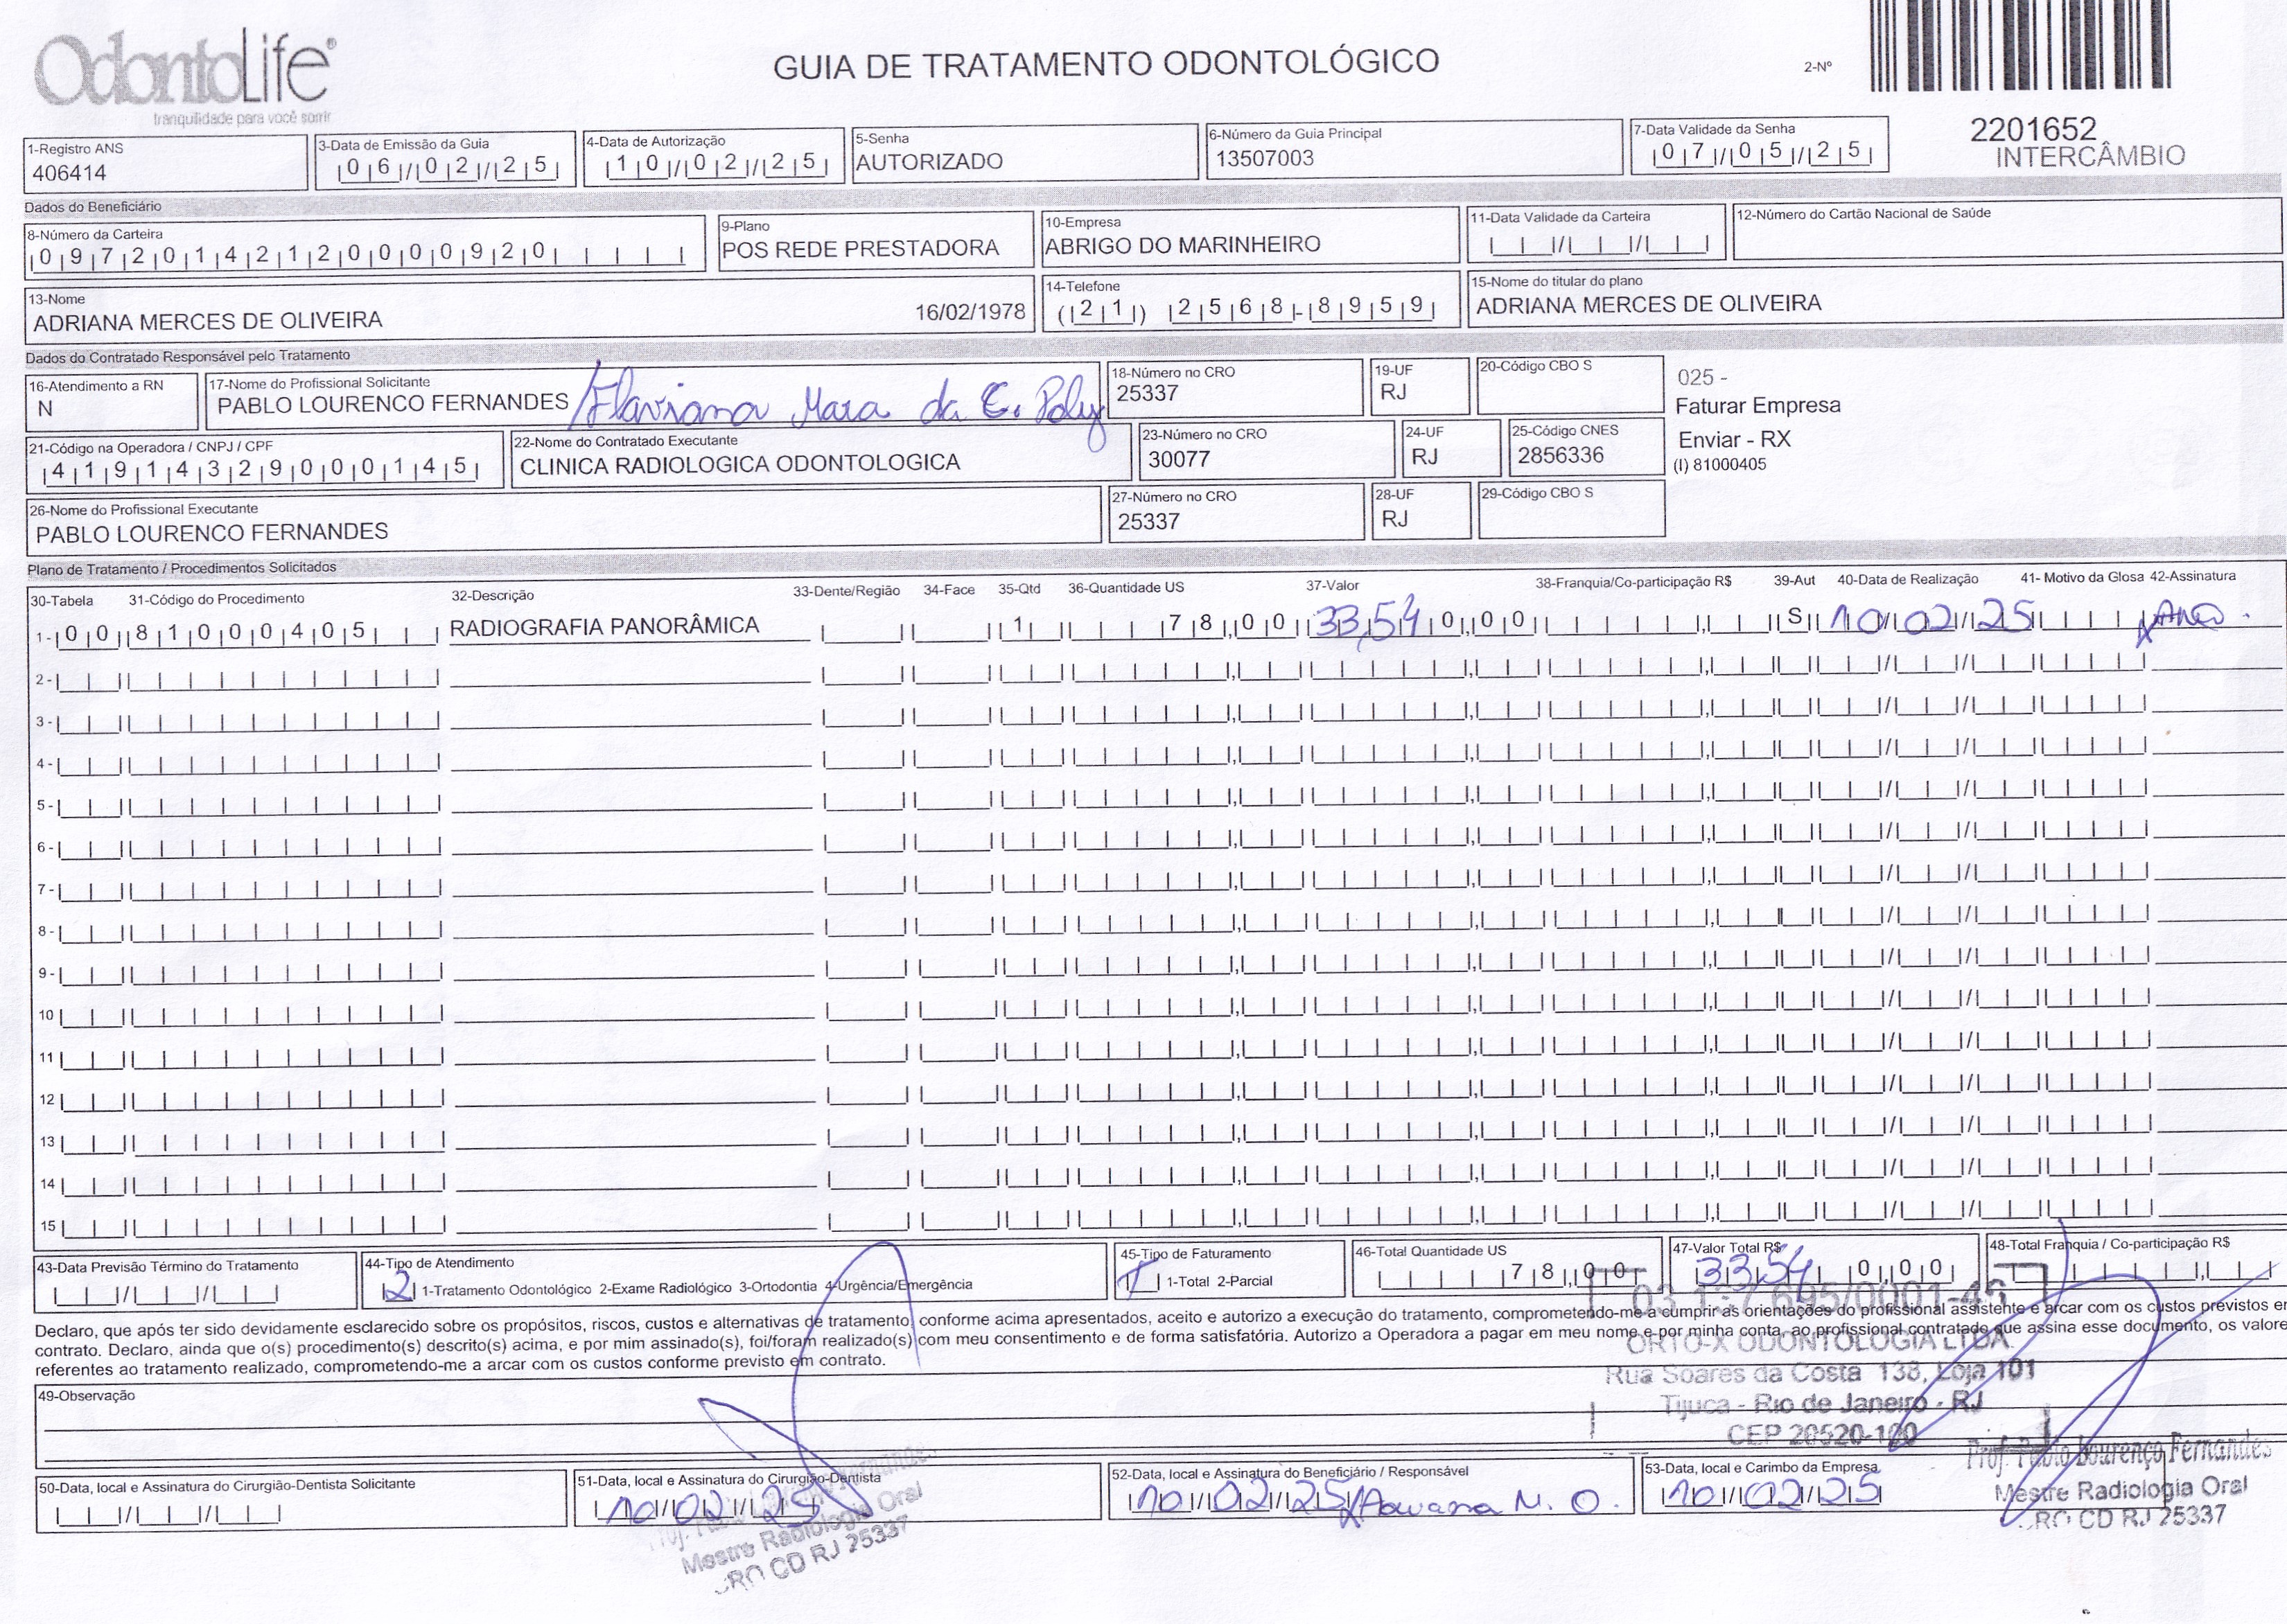 OdontoLife®
tranquilidade para você sorrir
GUIA DE TRATAMENTO ODONTOLÓGICO
2-Nº
2201652
INTERCÂMBIO
1-Registro ANS
406414
3-Data de Emissão da Guia
06/02/25
4-Data de Autorização
10/02/25
5-Senha
AUTORIZADO
6-Número da Guia Principal
13507003
7-Data Validade da Senha
07/05/25
Dados do Beneficiário
8-Número da Carteira
09720142120000920
9-Plano
POS REDE PRESTADORA
10-Empresa
ABRIGO DO MARINHEIRO
11-Data Validade da Carteira
12-Número do Cartão Nacional de Saúde
13-Nome
ADRIANA MERCES DE OLIVEIRA 16/02/1978
14-Telefone
(21) 2568-8959
15-Nome do titular do plano
ADRIANA MERCES DE OLIVEIRA
Dados do Contratado Responsável pelo Tratamento
16-Atendimento a RN
N
17-Nome do Profissional Solicitante
PABLO LOURENCO FERNANDES / Flaviana Mara da C. Poly
18-Número no CRO
25337
19-UF
RJ
20-Código CBO S
025 -
Faturar Empresa
Enviar - RX
(I) 81000405
21-Código na Operadora / CNPJ / CPF
41914329000145
22-Nome do Contratado Executante
CLINICA RADIOLOGICA ODONTOLOGICA
23-Número no CRO
30077
24-UF
RJ
25-Código CNES
2856336
26-Nome do Profissional Executante
PABLO LOURENCO FERNANDES
27-Número no CRO
25337
28-UF
RJ
29-Código CBO S
Plano de Tratamento / Procedimentos Solicitados
30-Tabela 31-Código do Procedimento 32-Descrição 33-Dente/Região 34-Face 35-Qtd 36-Quantidade US 37-Valor 38-Franquia/Co-participação R$ 39-Aut 40-Data de Realização 41- Motivo da Glosa 42-Assinatura
1- 00 81000405 RADIOGRAFIA PANORÂMICA 1 78,00 33,54 0,00 S 10/02/25
2-
3-
4-
5-
6-
7-
8-
9-
10
11
12
13
14
15
43-Data Previsão Término do Tratamento
44-Tipo de Atendimento
2 1-Tratamento Odontológico 2-Exame Radiológico 3-Ortodontia 4-Urgência/Emergência
45-Tipo de Faturamento
1-Total 2-Parcial
46-Total Quantidade US
78,00
47-Valor Total R$
33,54 0,00
48-Total Franquia / Co-participação R$
Declaro, que após ter sido devidamente esclarecido sobre os propósitos, riscos, custos e alternativas de tratamento, conforme acima apresentados, aceito e autorizo a execução do tratamento, comprometendo-me a cumprir as orientações do profissional assistente e arcar com os custos previstos em
contrato. Declaro, ainda que o(s) procedimento(s) descrito(s) acima, e por mim assinado(s), foi/foram realizado(s) com meu consentimento e de forma satisfatória. Autorizo a Operadora a pagar em meu nome e por minha conta, ao profissional contratado que assina esse documento, os valore
referentes ao tratamento realizado, comprometendo-me a arcar com os custos conforme previsto em contrato.
ORTO-X ODONTOLOGIA LTDA.
Rua Soares da Costa 138, Loja 101
Tijuca - Rio de Janeiro - RJ
CEP 20520-100
49-Observação
50-Data, local e Assinatura do Cirurgião-Dentista Solicitante
51-Data, local e Assinatura do Cirurgião-Dentista
10/02/25
Mestre Radiologia Oral
CRO CD RJ 25337
52-Data, local e Assinatura do Beneficiário / Responsável
10/02/25 Adriana M. O.
53-Data, local e Carimbo da Empresa
10/02/25
Prof. Pablo Lourenço Fernandes
Mestre Radiologia Oral
CRO CD RJ 25337